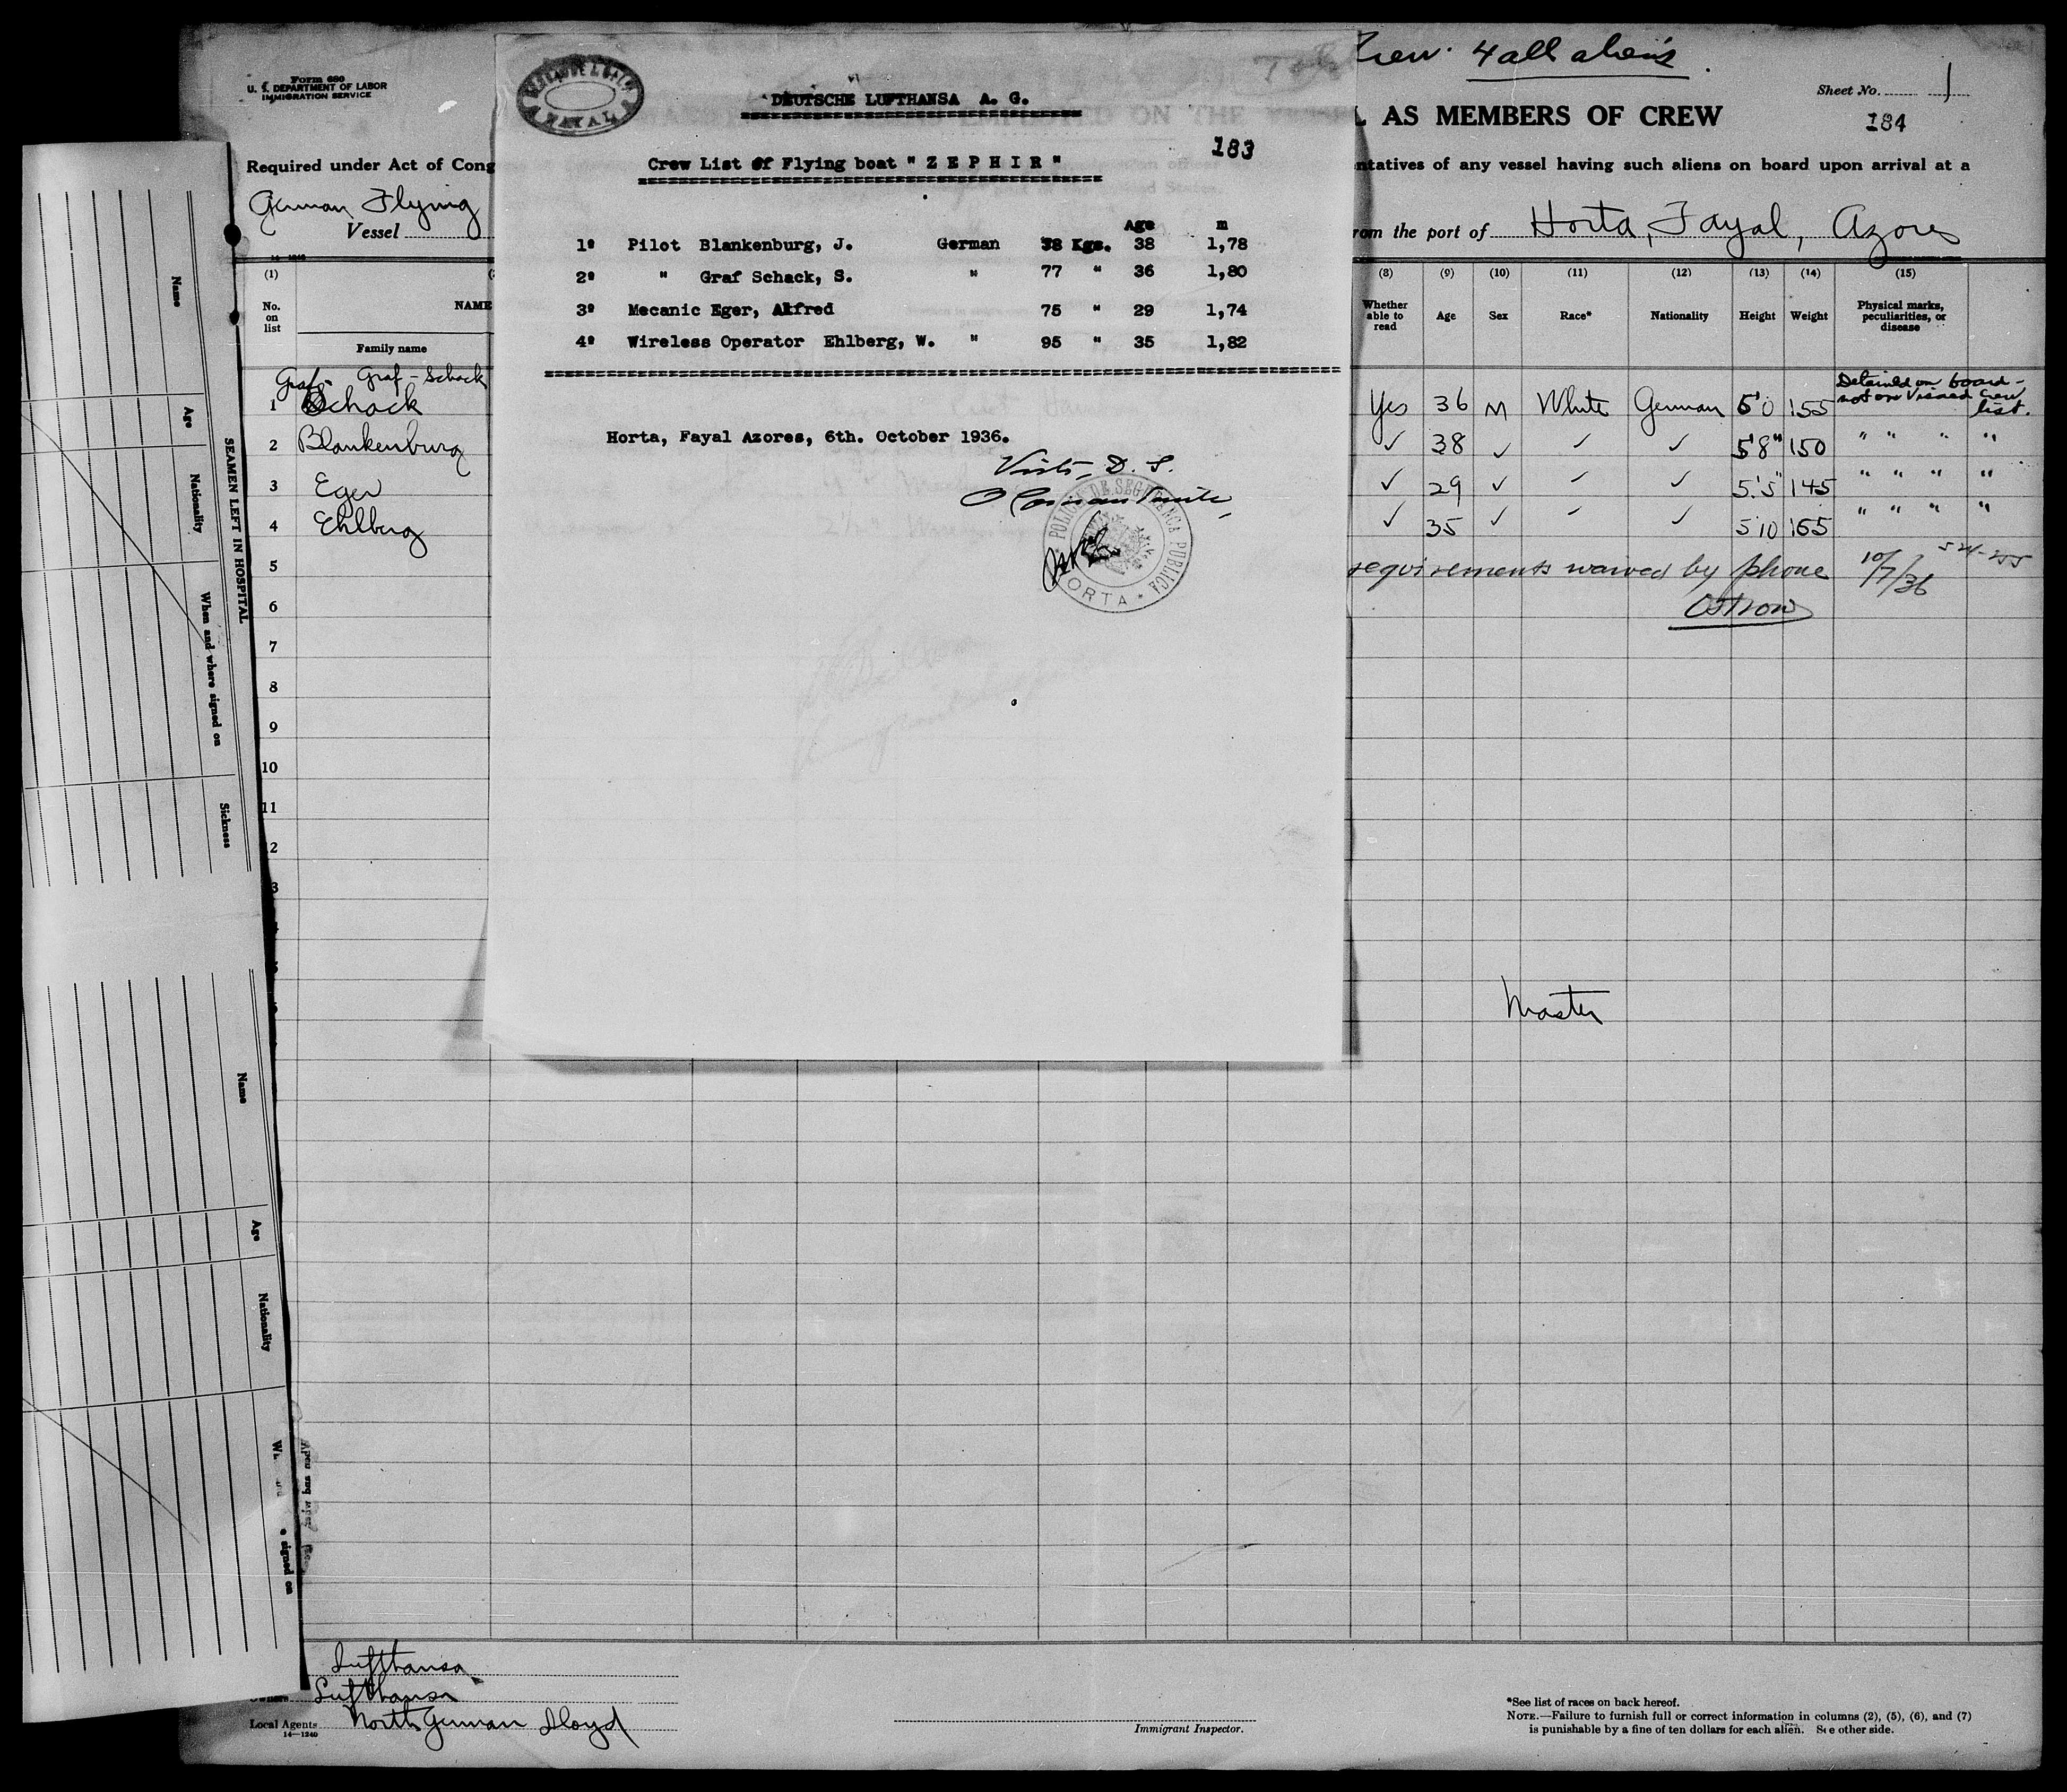 Form 680
U. S. DEPARTMENT OF LABOR
IMMIGRATION SERVICE
Crew 4 all aliens.
Sheet No. 1
L AS MEMBERS OF CREW
184
Required under Act of Cong
ntatives of any vessel having such aliens on board upon arrival at a
German Flying
Vessel
om the port of Horta, Fayal, Azores
FAYAL
DEUTSCHE LUFTHANSA A. G.
183
Crew List of Flying boat " Z E P H I R "
Age m
1º Pilot Blankenburg, J. German 78 Kgs. 38 1,78
2º " Graf Schack, S. " 77 " 36 1,80
3º Mecanic Eger, Alfred 75 " 29 1,74
4º Wireless Operator Ehlberg, W. " 95 " 35 1,82
Horta, Fayal Azores, 6th. October 1936.
POLICIA DE SEGURANÇA PUBLICA
* HORTA *
(1) (8) (9) (10) (11) (12) (13) (14) (15)
No. on list
NAME
Family name
Whether able to read
Age
Sex
Race*
Nationality
Height
Weight
Physical marks, peculiarities, or disease
Graf- Graf-Schack
1 Schack Yes 36 M White German 5'0 155 Detained on board - not on visaed crew list.
2 Blankenburg ✓ 38 ✓ ✓ ✓ 5'8" 150 " " " "
3 Eger ✓ 29 ✓ ✓ ✓ 5'5" 145 " " " "
4 Ehlberg ✓ 35 ✓ ✓ ✓ 5'10 165 " " " "
5 requirements waived by phone 10/7/36
6 Ostrow
7
8
9
10
11
2
3
Master
SEAMEN LEFT IN HOSPITAL
Name
Age
Nationality
When and where signed on
Sickness
Name
Age
Nationality
signed on
Lufthansa
Owners Lufthansa
Local Agents North German Lloyd
14—1240
Immigrant Inspector.
*See list of races on back hereof.
NOTE.—Failure to furnish full or correct information in columns (2), (5), (6), and (7)
is punishable by a fine of ten dollars for each alien. See other side.